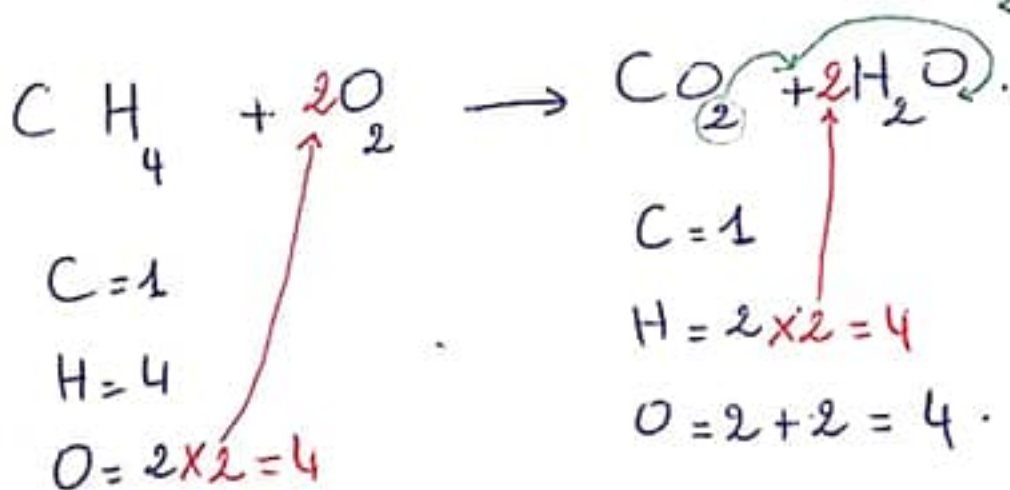 CH₄ + 2O₂ → CO₂ + 2H₂O.
C = 1
H = 4
O = 2 × 2 = 4
C = 1
H = 2 × 2 = 4
O = 2 + 2 = 4.